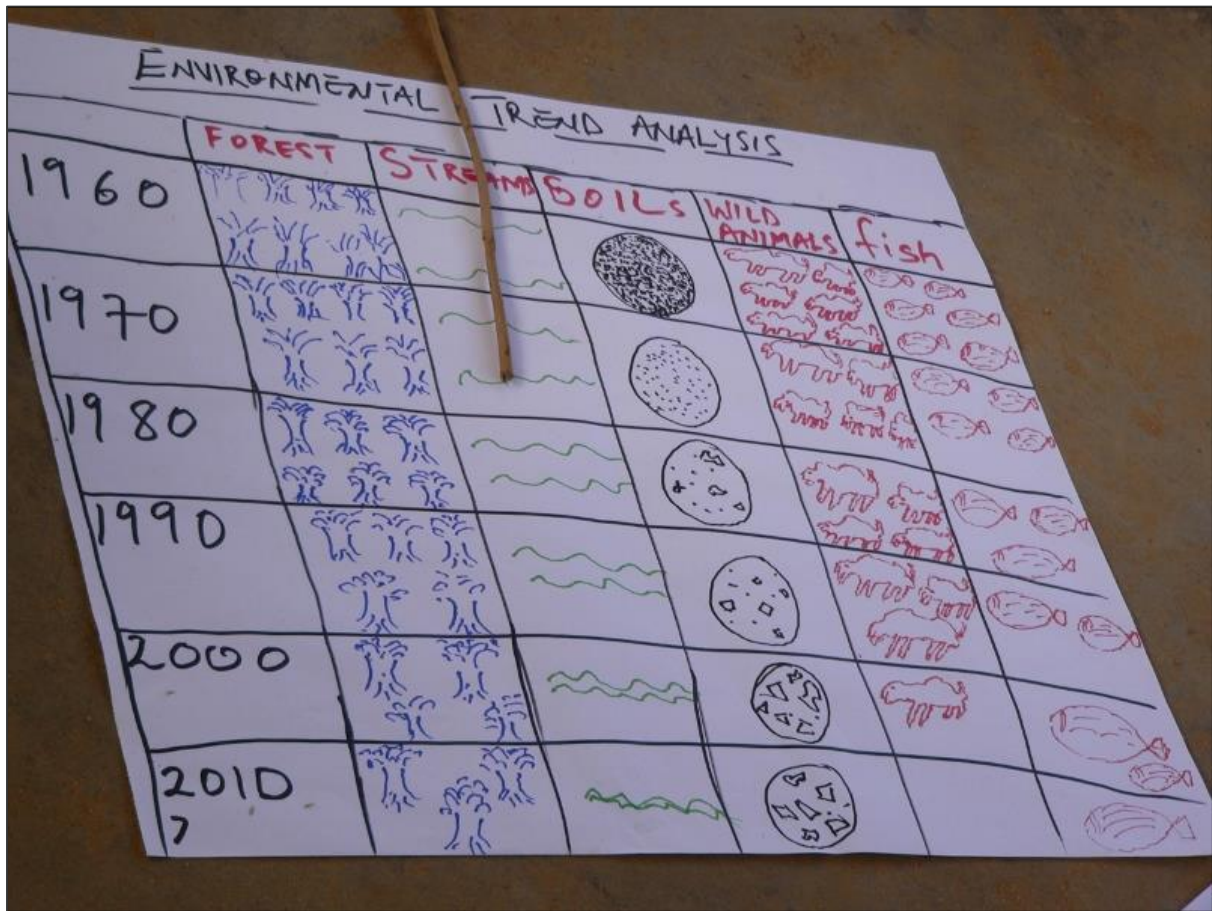 ENVIRONMENTAL TREND ANALYSIS
FOREST STREAMS SOILS WILD ANIMALS fish
1960
1970
1980
1990
2000
2010
>